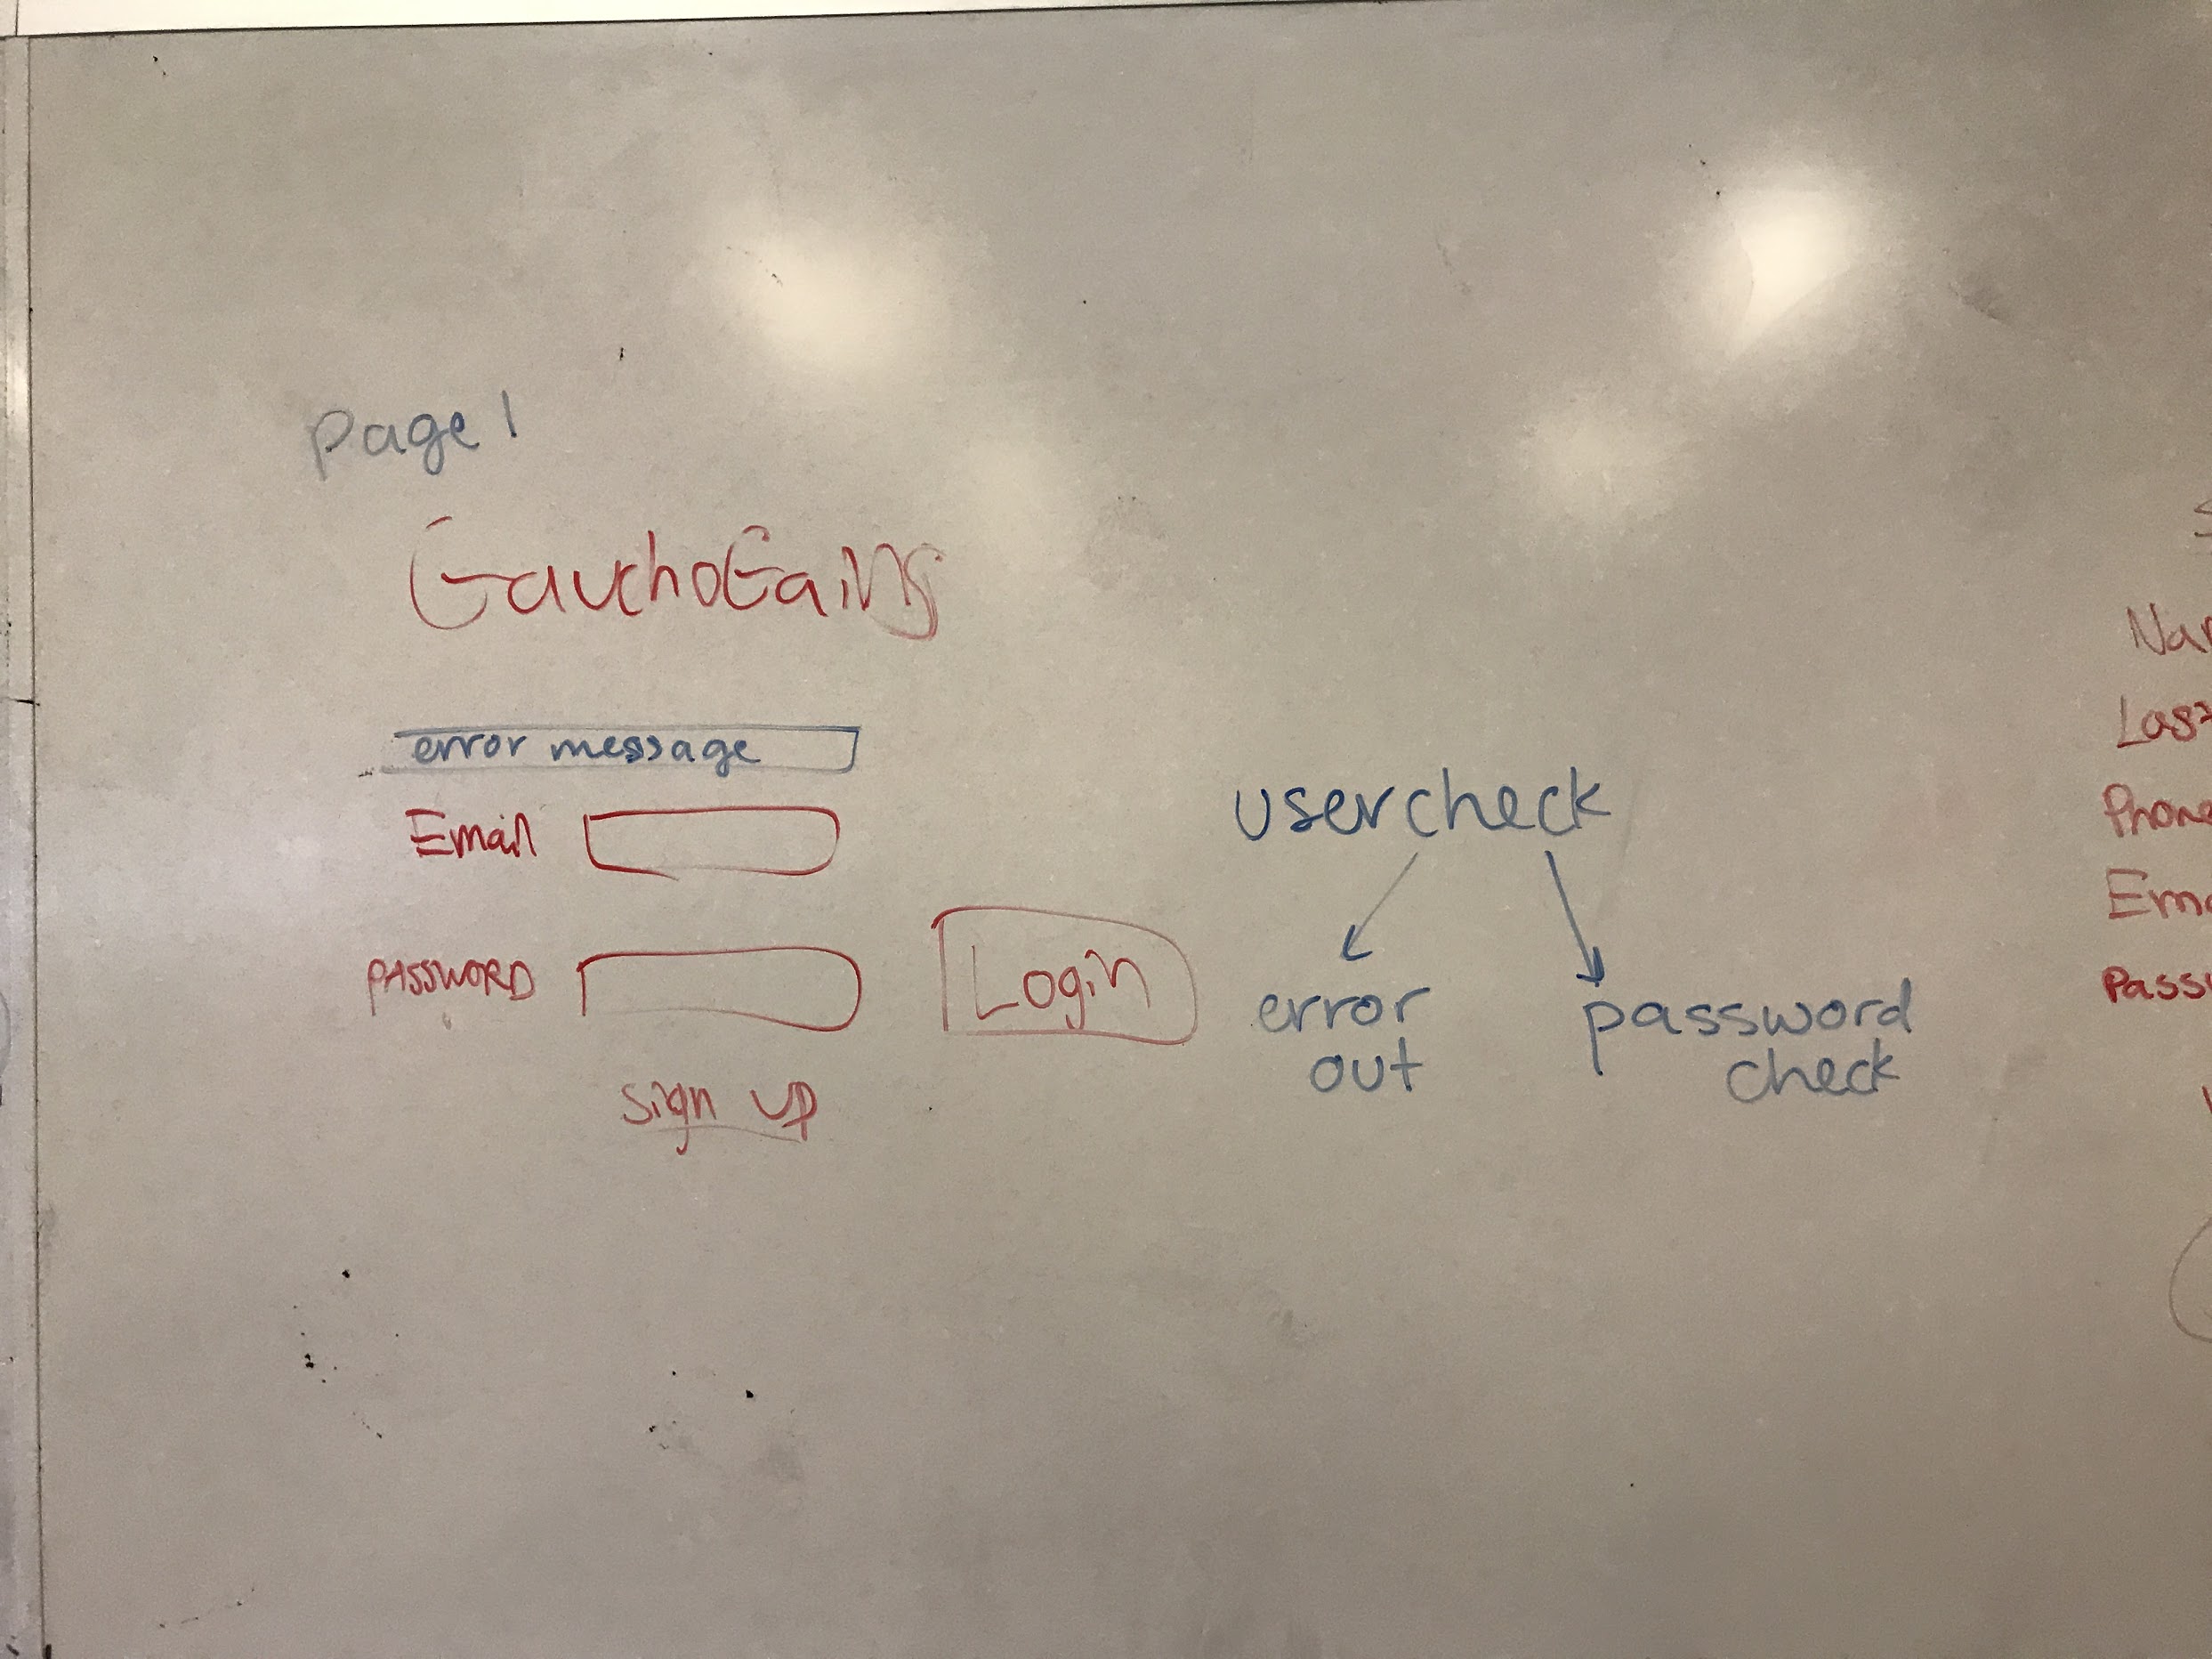 page 1
GauchoGains
error message
Email
PASSWORD
Login
sign up
user check
error
out
password
check
Phone